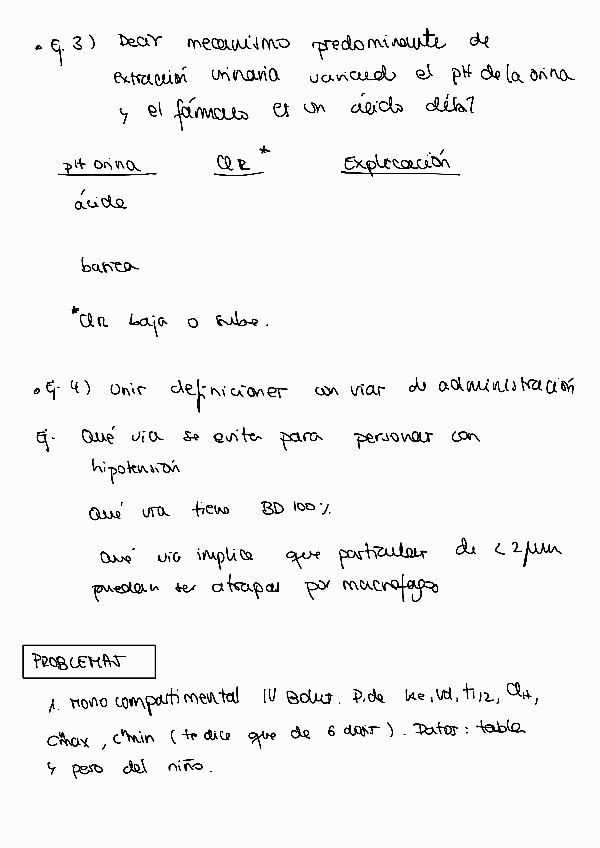 • Ej. 3) Decir mecanismo predominante de
extracción urinaria variando el pH de la orina
y el fármaco es un ácido débil
pH orina ClR* Explicación
ácida
básica
*ClR baja o sube.
• Ej. 4) Unir definiciones con vías de administración
Ej. Qué vía se evita para personas con
hipotensión
Qué vía tiene BD 100%
Qué vía implica que particulas de < 2 μm
puedan ser atrapas por macrofagos
PROBLEMAS
1. Monocompartimental IV Bolus. P. de Ke, Vd, t1/2, Cl,
C∞max, C∞min (te dice que de 6 dosis). Datos: tabla
y peso del niño.